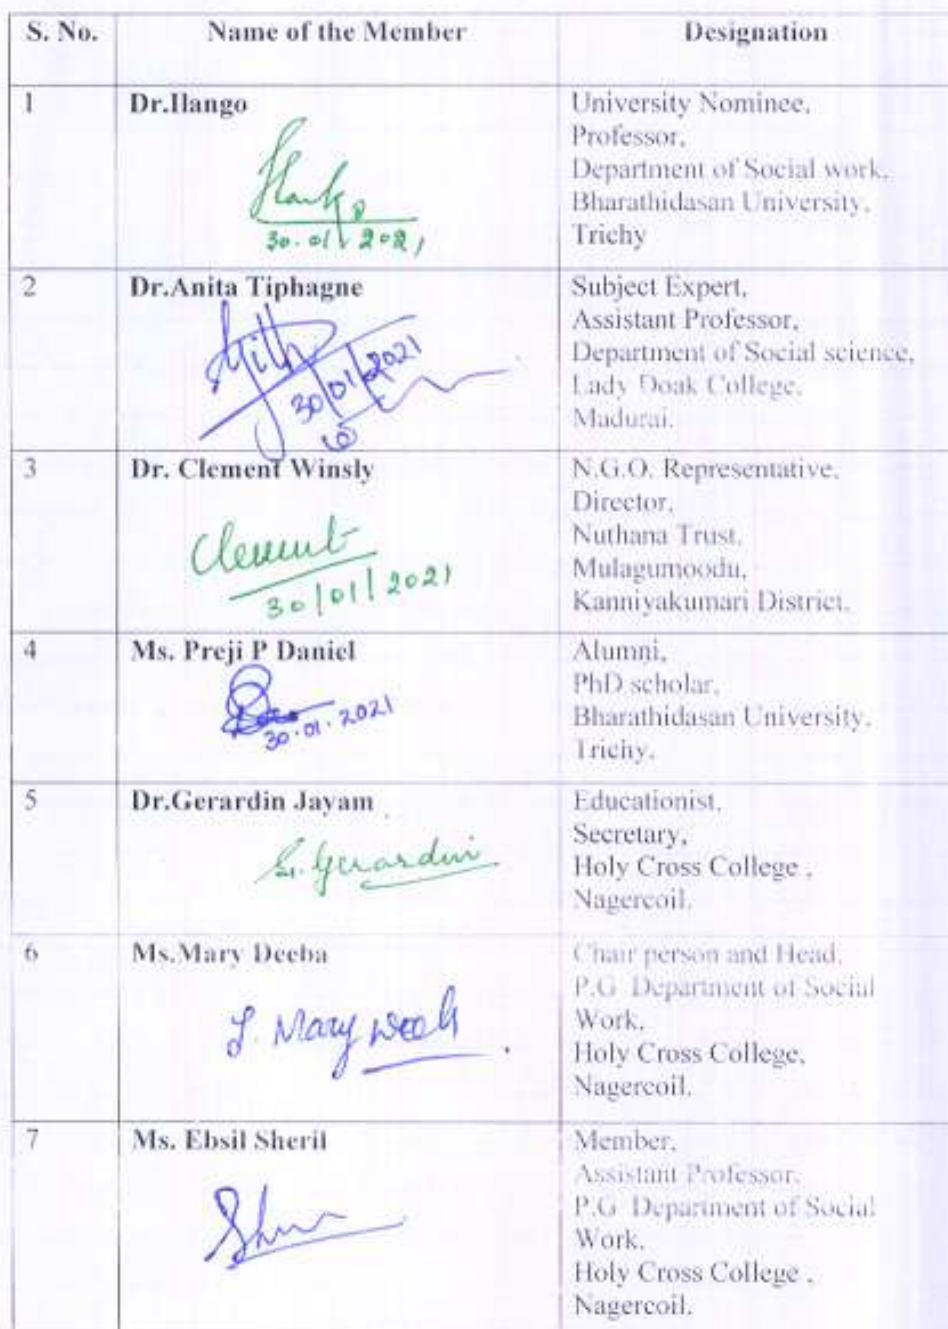 S. No. Name of the Member Designation
1 Dr.Ilango University Nominee,
Professor,
Department of Social work,
Bharathidasan University,
Trichy
30.01.2021
2 Dr.Anita Tiphagne Subject Expert,
Assistant Professor,
Department of Social science,
Lady Doak College,
Madurai.
30/01/2021
3 Dr. Clement Winsly N.G.O. Representative,
Director,
Nuthana Trust,
Mulagumoodu,
Kanniyakumari District.
Clement
30/01/2021
4 Ms. Preji P Daniel Alumni,
PhD scholar,
Bharathidasan University,
Trichy.
30.01.2021
5 Dr.Gerardin Jayam Educationist,
Secretary,
Holy Cross College ,
Nagercoil.
Gerardin
6 Ms.Mary Deeba Chair person and Head,
P.G Department of Social
Work,
Holy Cross College,
Nagercoil.
Mary
7 Ms. Ebsil Sheril Member,
Assistant Professor,
P.G Department of Social
Work,
Holy Cross College ,
Nagercoil.